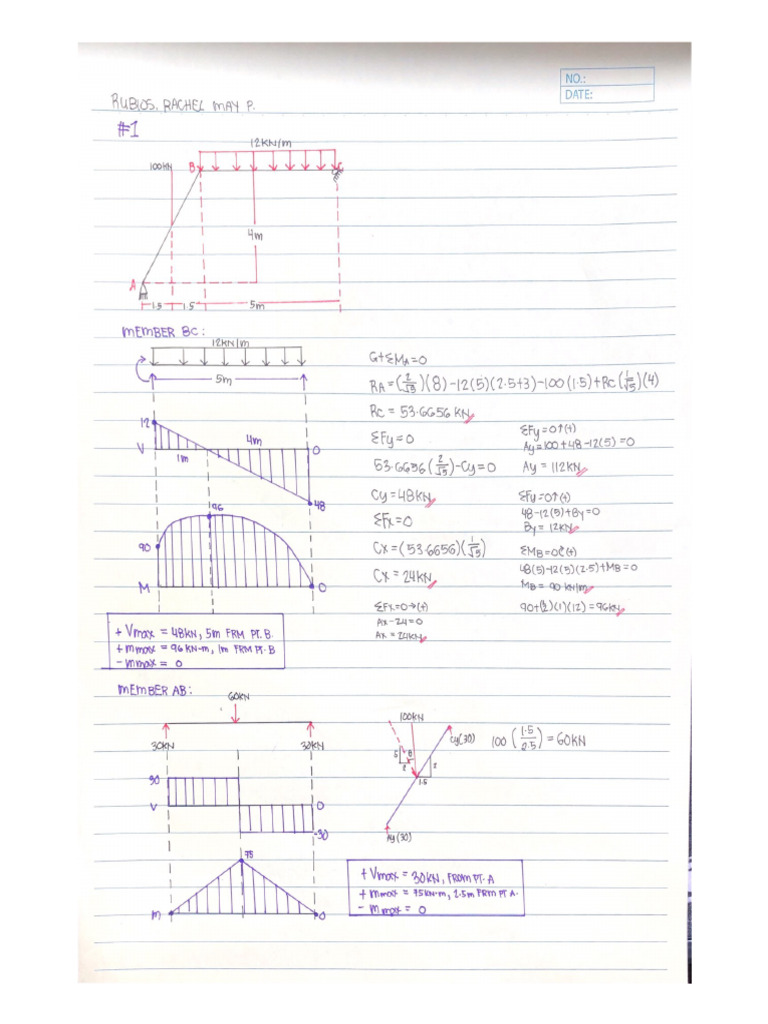 NO.:
DATE:
RUBIOS, RACHEL MAY P.
#1
12KN/m
100KN
B
C
4m
A
1.5
1.5
5m
MEMBER BC:
12KN/m
5m
12
V
1m
4m
0
48
96
90
M
0
+ Vmax = 48KN, 5m FRM PT. B.
+ mmax = 96 KN-m, 1m FRM PT. B
- mmax = 0
G+ΣMA=0
RA=(2/√5)(8)-12(5)(2.5+3)-100(1.5)+Rc(1/√5)(4)
Rc = 53.6656 KN
ΣFy=0
53.6656(2/√5)-Cy=0
Cy=48KN
ΣFx=0
Cx=(53.6656)(1/√5)
Cx = 24KN
ΣFx=0→(+)
Ax-24=0
Ax = 24KN
ΣFy=0↑(+)
Ay=100+48-12(5)=0
Ay = 112KN
ΣFy=0↑(+)
48-12(5)+By=0
By = 12KN
ΣMB=0(+)
48(5)-12(5)(2.5)+MB=0
MB = 90 KN/m
90+(1/2)(1)(12)=96KN
MEMBER AB:
60KN
30KN
30KN
90
V
0
-30
75
M
0
100KN
Cy(30)
1.5
2
Ay(30)
100(1.5/2.5)=60KN
+ Vmax = 30KN, FROM PT. A
+ mmax = 75KN-m, 2.5m FRM PT A.
- mmax = 0